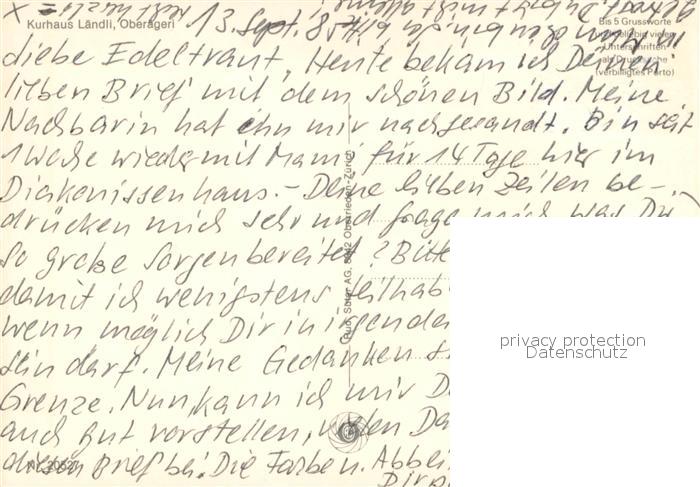 Kurhaus Ländli, Oberägeri
Bis 5 Grussworte
13. Sept. 85
Unterschriften
(verbilligtes Porto)
Liebe Edeltraut, Heute bekam ich Deinen
lieben Brief mit dem schönen Bild. Meine
Nachbarin hat ihn mir nachgesandt. Bin seit
1 Woche wieder mit Mami für 14 Tage hier im
Diakonissenhaus. - Deine lieben Zeilen be-
drücken mich sehr und frage mich was Dir
so große Sorgen bereitet? Bitte
damit ich wenigstens teilhab
wenn möglich Dir in irgendei
sein darf. Meine Gedanken s
Grenze. Nun, kann ich mir D
auch gut vorstellen, vielen Da
diesen Brief bei. Die Farben u. Abbei
Dir
Rud. Suter AG, 8942 Oberrieden-Zürich
privacy protection
Datenschutz